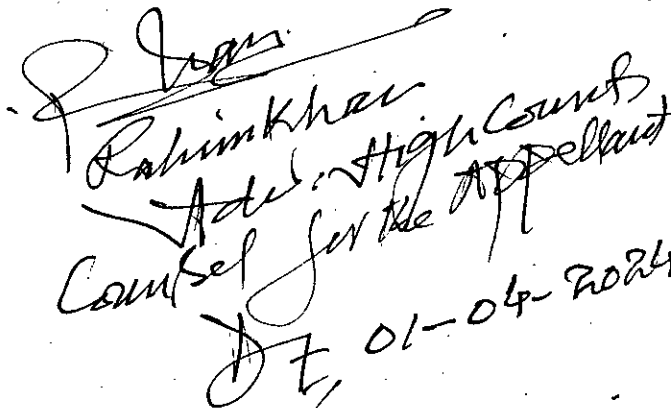 Rahim Khan
Adv. High Courts
Counsel for the Appellant
Dt, 01-04-2024